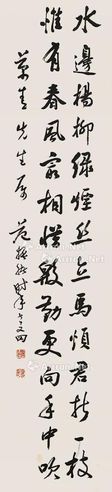 水邊楊柳綠煙絲立馬煩君折一枝
惟有春風最相惜殷勤更向手中吹
先生屬 時年又四